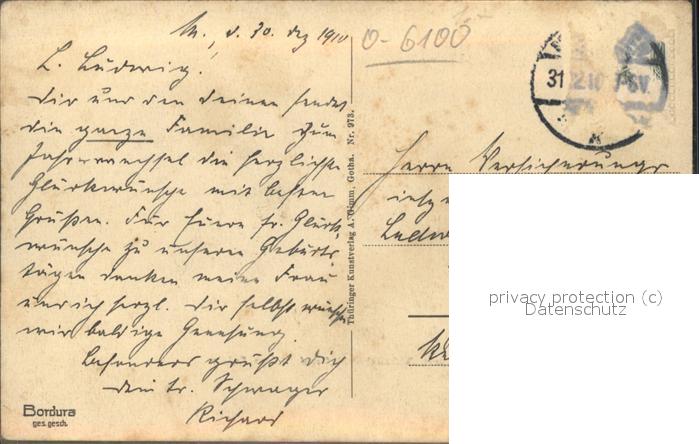 M., d. 30. Dez 1910
L. Ludwig!
Dir und den Deinen sendet
die ganze Familie zum
Jahreswechsel die herzlichsten
Glückwünsche mit besten
Grüßen. Für Euere fr. Glück-
wünsche zu unseren Geburts-
tagen danken meine Frau
und ich herzl. Dir selbst wünschen
wir baldige Genesung.
Besonders grüßt Dich
Dein tr. Schwager
Richard
Bordura
ges. gesch.
Thüringer Kunstverlag A. Gimm, Gotha. Nr. 973.
0-6100
31
Herrn Versicherungs
Ludw
privacy protection (c)
Datenschutz